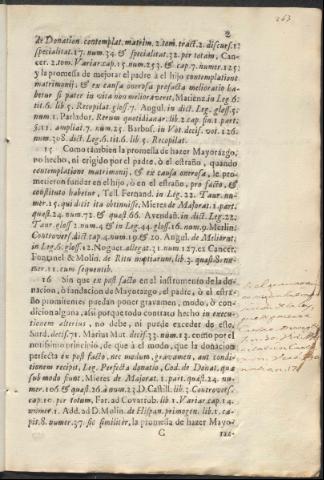 263
2
de Donation. contemplat. matrim. 2. tom. tract. 2. discurs. 1.
specialitat. 17. num. 34. & specialitat. 32. per totam, Can-
cer. 2. tom. Variar. cap. 15. num. 253. & cap. 7. numer. 125.
y la promesa de mejorar el padre à el hijo contemplatione
matrimonij, & ex causa onerosa profecta melioratio ha-
betur si pater in vita non melioraverit, Matienz. in Leg. 6.
tit. 6. lib. 5. Recopilat. gloss. 7. Angul. in dict. Leg. gloss. 5.
num. 1. Parlador. Rerum quotidianar. lib. 2. cap. fin. 1. part.
5. 11. ampliat. 7. num. 25. Barbos. in Vot. decis. vot. 126.
num. 308. dict. Leg. 6. tit. 6. lib. 5. Recopilat.
15 Como tambien la promesa de hazer Mayorazgo,
no hecho, ni erigido por el padre, ò el estraño, quando
contemplatione matrimonij, & ex causa onerosa, le pro-
metieron fundar en el hijo, ò en el estraño, pro facto, &
constituto habetur, Tell. Fernand. in Leg. 22. Taur. nu-
mer. 15. qui dicit ita obtinuisse, Mieres de Majorat. 1. part.
quæst. 24. num. 72. & quæst. 66. Avendañ. in dict. Leg. 22.
Taur. gloss. 2. num. 4. & in Leg. 44. gloss. 16. num. 9. Merlin.
Controvers. dict. cap. 4. num. 19. & 20. Angul. de Meliorat.
in Leg. 6. gloss. 12. Noguer. allegat. 31. num. 127. ex Cancer.
Fontanel. & Molin. de Ritu nuptiarum, lib. 3. quæst. 8. nu-
mer. 11. cum sequentib.
16 Sin que ex post facto en el instrumento de la do-
nacion, ò fundacion de Mayorazgo el padre, ò el estra-
ño promitentes puedan poner gravamen, modo, ò con-
dicion alguna, assi porque todo contrato hecho in execu-
tionem alterius, no debe, ni puede exceder de este,
Surd. decis. 71. Marius Mut. decis. 33. num. 13. como por el
notissimo principio, de que à el modo, que la donacion
perfecta ex post facto, nec modum, gravamen, aut condi-
tionem recipit, Leg. Perfecta donatio, Cod. de Donat. quæ
sub modo fiunt, Mieres de Majorat. 1. part. quæst. 24. nu-
mer. 106. & quæst. 26. à num. 23. D. Castill. lib. 3. Controvers.
cap. 10. per totum, Far. ad Covarrub. lib. 1. Variar. cap. 14.
numer. 1. Add. ad D. Molin. de Hispan. primogen. lib. 1. ca-
pit. 8. numer. 37. sic similiter, la promesa de hazer Mayo-
C